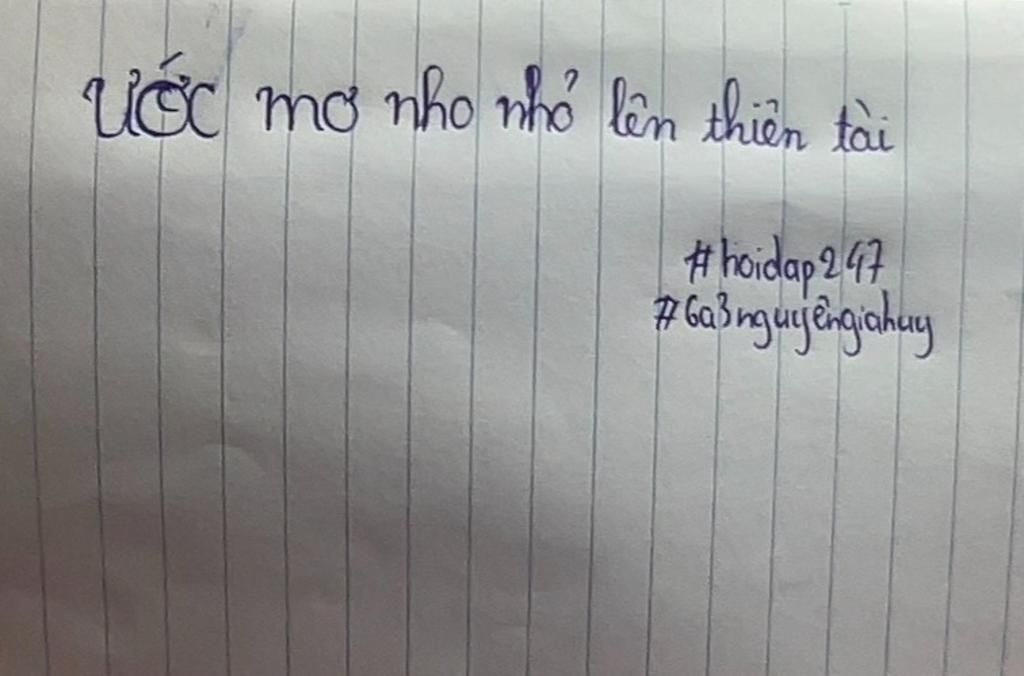 Ước mơ nho nhỏ lên thiên tài
#hoidap247
#6a3nguyêngiahuy